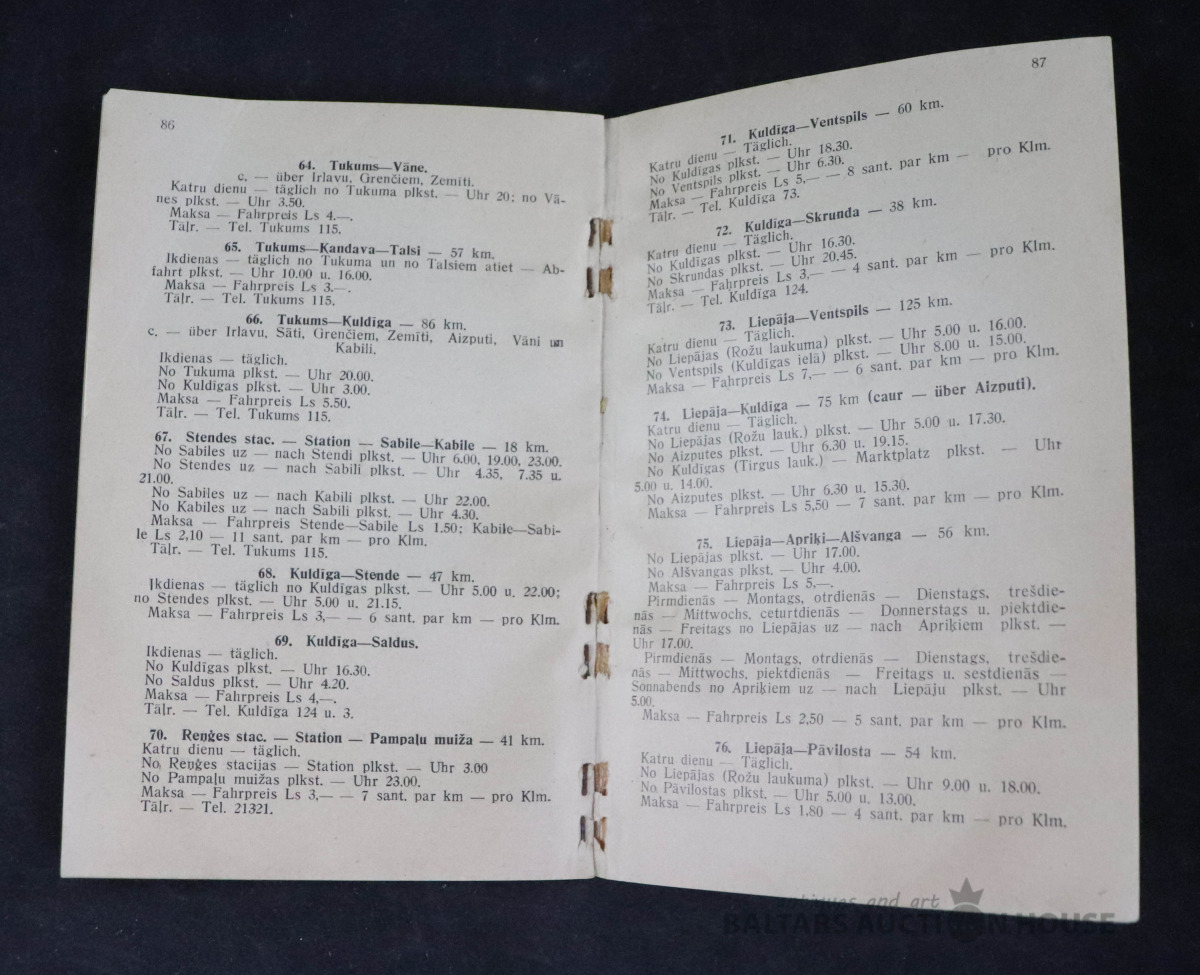 86
64. Tukums—Vāne.
c. — über Irlavu, Grenčiem, Zemīti.
Katru dienu — täglich no Tukuma plkst. — Uhr 20; no Vā-
nes plkst. — Uhr 3.50.
Maksa — Fahrpreis Ls 4.—.
Tāļr. — Tel. Tukums 115.
65. Tukums—Kandava—Talsi — 57 km.
Ikdienas — täglich no Tukuma un no Talsiem atiet — Ab-
fahrt plkst. — Uhr 10.00 u. 16.00.
Maksa — Fahrpreis Ls 3.—.
Tāļr. — Tel. Tukums 115.
66. Tukums—Kuldīga — 86 km.
c. — über Irlavu, Sāti, Grenčiem, Zemīti, Aizputi, Vāni un
Kabili.
Ikdienas — täglich.
No Tukuma plkst. — Uhr 20.00.
No Kuldīgas plkst. — Uhr 3.00.
Maksa — Fahrpreis Ls 5.50.
Tāļr. — Tel. Tukums 115.
67. Stendes stac. — Station — Sabile—Kabile — 18 km.
No Sabiles uz — nach Stendi plkst. — Uhr 6.00, 19.00, 23.00.
No Stendes uz — nach Sabili plkst. — Uhr 4.35, 7.35 u.
21.00.
No Sabiles uz — nach Kabili plkst. — Uhr 22.00.
No Kabiles uz — nach Sabili plkst. — Uhr 4.30.
Maksa — Fahrpreis Stende—Sabile Ls 1.50; Kabile—Sabi-
le Ls 2,10 — 11 sant. par km — pro Klm.
Tāļr. — Tel. Tukums 115.
68. Kuldīga—Stende — 47 km.
Ikdienas — täglich no Kuldīgas plkst. — Uhr 5.00 u. 22.00;
no Stendes plkst. — Uhr 5.00 u. 21.15.
Maksa — Fahrpreis Ls 3,— — 6 sant. par km — pro Klm.
69. Kuldīga—Saldus.
Ikdienas — täglich.
No Kuldīgas plkst. — Uhr 16.30.
No Saldus plkst. — Uhr 4.20.
Maksa — Fahrpreis Ls 4,—.
Tāļr. — Tel. Kuldīga 124 u. 3.
70. Reņģes stac. — Station — Pampaļu muiža — 41 km.
Katru dienu — täglich.
No Reņģes stacijas — Station plkst. — Uhr 3.00
No Pampaļu muižas plkst. — Uhr 23.00.
Maksa — Fahrpreis Ls 3,— — 7 sant. par km — pro Klm.
Tāļr. — Tel. 21321.
87
71. Kuldīga—Ventspils — 60 km.
Katru dienu — Täglich.
No Kuldīgas plkst. — Uhr 18.30.
No Ventspils plkst. — Uhr 6.30.
Maksa — Fahrpreis Ls 5,— — 8 sant. par km — pro Klm.
Tāļr. — Tel. Kuldīga 73.
72. Kuldīga—Skrunda — 38 km.
Katru dienu — Täglich.
No Kuldīgas plkst. — Uhr 16.30.
No Skrundas plkst. — Uhr 20.45.
Maksa — Fahrpreis Ls 3,— — 4 sant. par km — pro Klm.
Tāļr. — Tel. Kuldīga 124.
73. Liepāja—Ventspils — 125 km.
Katru dienu — Täglich.
No Liepājas (Rožu laukuma) plkst. — Uhr 5.00 u. 16.00.
No Ventspils (Kuldīgas ielā) plkst. — Uhr 8.00 u. 15.00.
Maksa — Fahrpreis Ls 7,— — 6 sant. par km — pro Klm.
74. Liepāja—Kuldīga — 75 km (caur — über Aizputi).
Katru dienu — Täglich.
No Liepājas (Rožu lauk.) plkst. — Uhr 5.00 u. 17.30.
No Aizputes plkst. — Uhr 6.30 u. 19.15.
No Kuldīgas (Tirgus lauk.) — Marktplatz plkst. — Uhr
5.00 u. 14.00.
No Aizputes plkst. — Uhr 6.30 u. 15.30.
Maksa — Fahrpreis Ls 5,50 — 7 sant. par km — pro Klm.
75. Liepāja—Apriķi—Alšvanga — 56 km.
No Liepājas plkst. — Uhr 17.00.
No Alšvangas plkst. — Uhr 4.00.
Maksa — Fahrpreis Ls 5,—.
Pirmdienās — Montags, otrdienās — Dienstags, trešdie-
nās — Mittwochs, ceturtdienās — Donnerstags u. piektdie-
nās — Freitags no Liepājas uz — nach Apriķiem plkst. —
Uhr 17.00.
Pirmdienās — Montags, otrdienās — Dienstags, trešdie-
nās — Mittwochs, piektdienās — Freitags u. sestdienās —
Sonnabends no Apriķiem uz — nach Liepāju plkst. — Uhr
5.00.
Maksa — Fahrpreis Ls 2,50 — 5 sant. par km — pro Klm.
76. Liepāja—Pāvilosta — 54 km.
Katru dienu — Täglich.
No Liepājas (Rožu laukuma) plkst. — Uhr 9.00 u. 18.00.
No Pāvilostas plkst. — Uhr 5.00 u. 13.00.
Maksa — Fahrpreis Ls 1,80 — 4 sant. par km — pro Klm.
antiques and art
BALTARS AUCTION HOUSE